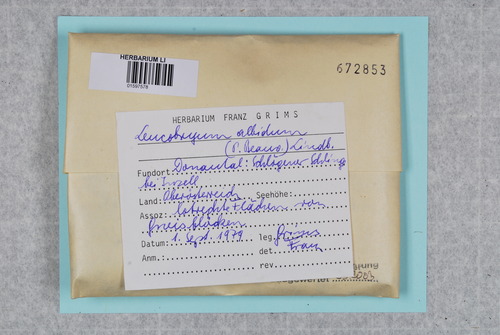 HERBARIUM LI
01597578
672853
HERBARIUM FRANZ GRIMS
Leucobryum albidum
(P. Beauv.) Lindb.
Fundort: Donautal: Schlögener Schlinge
bei Inzell
Land: Oberösterreich Seehöhe:
Assoz.: Flächen von
Datum: 1. Sept. 1979 leg. Grims
Anm.: det. Franz
rev.